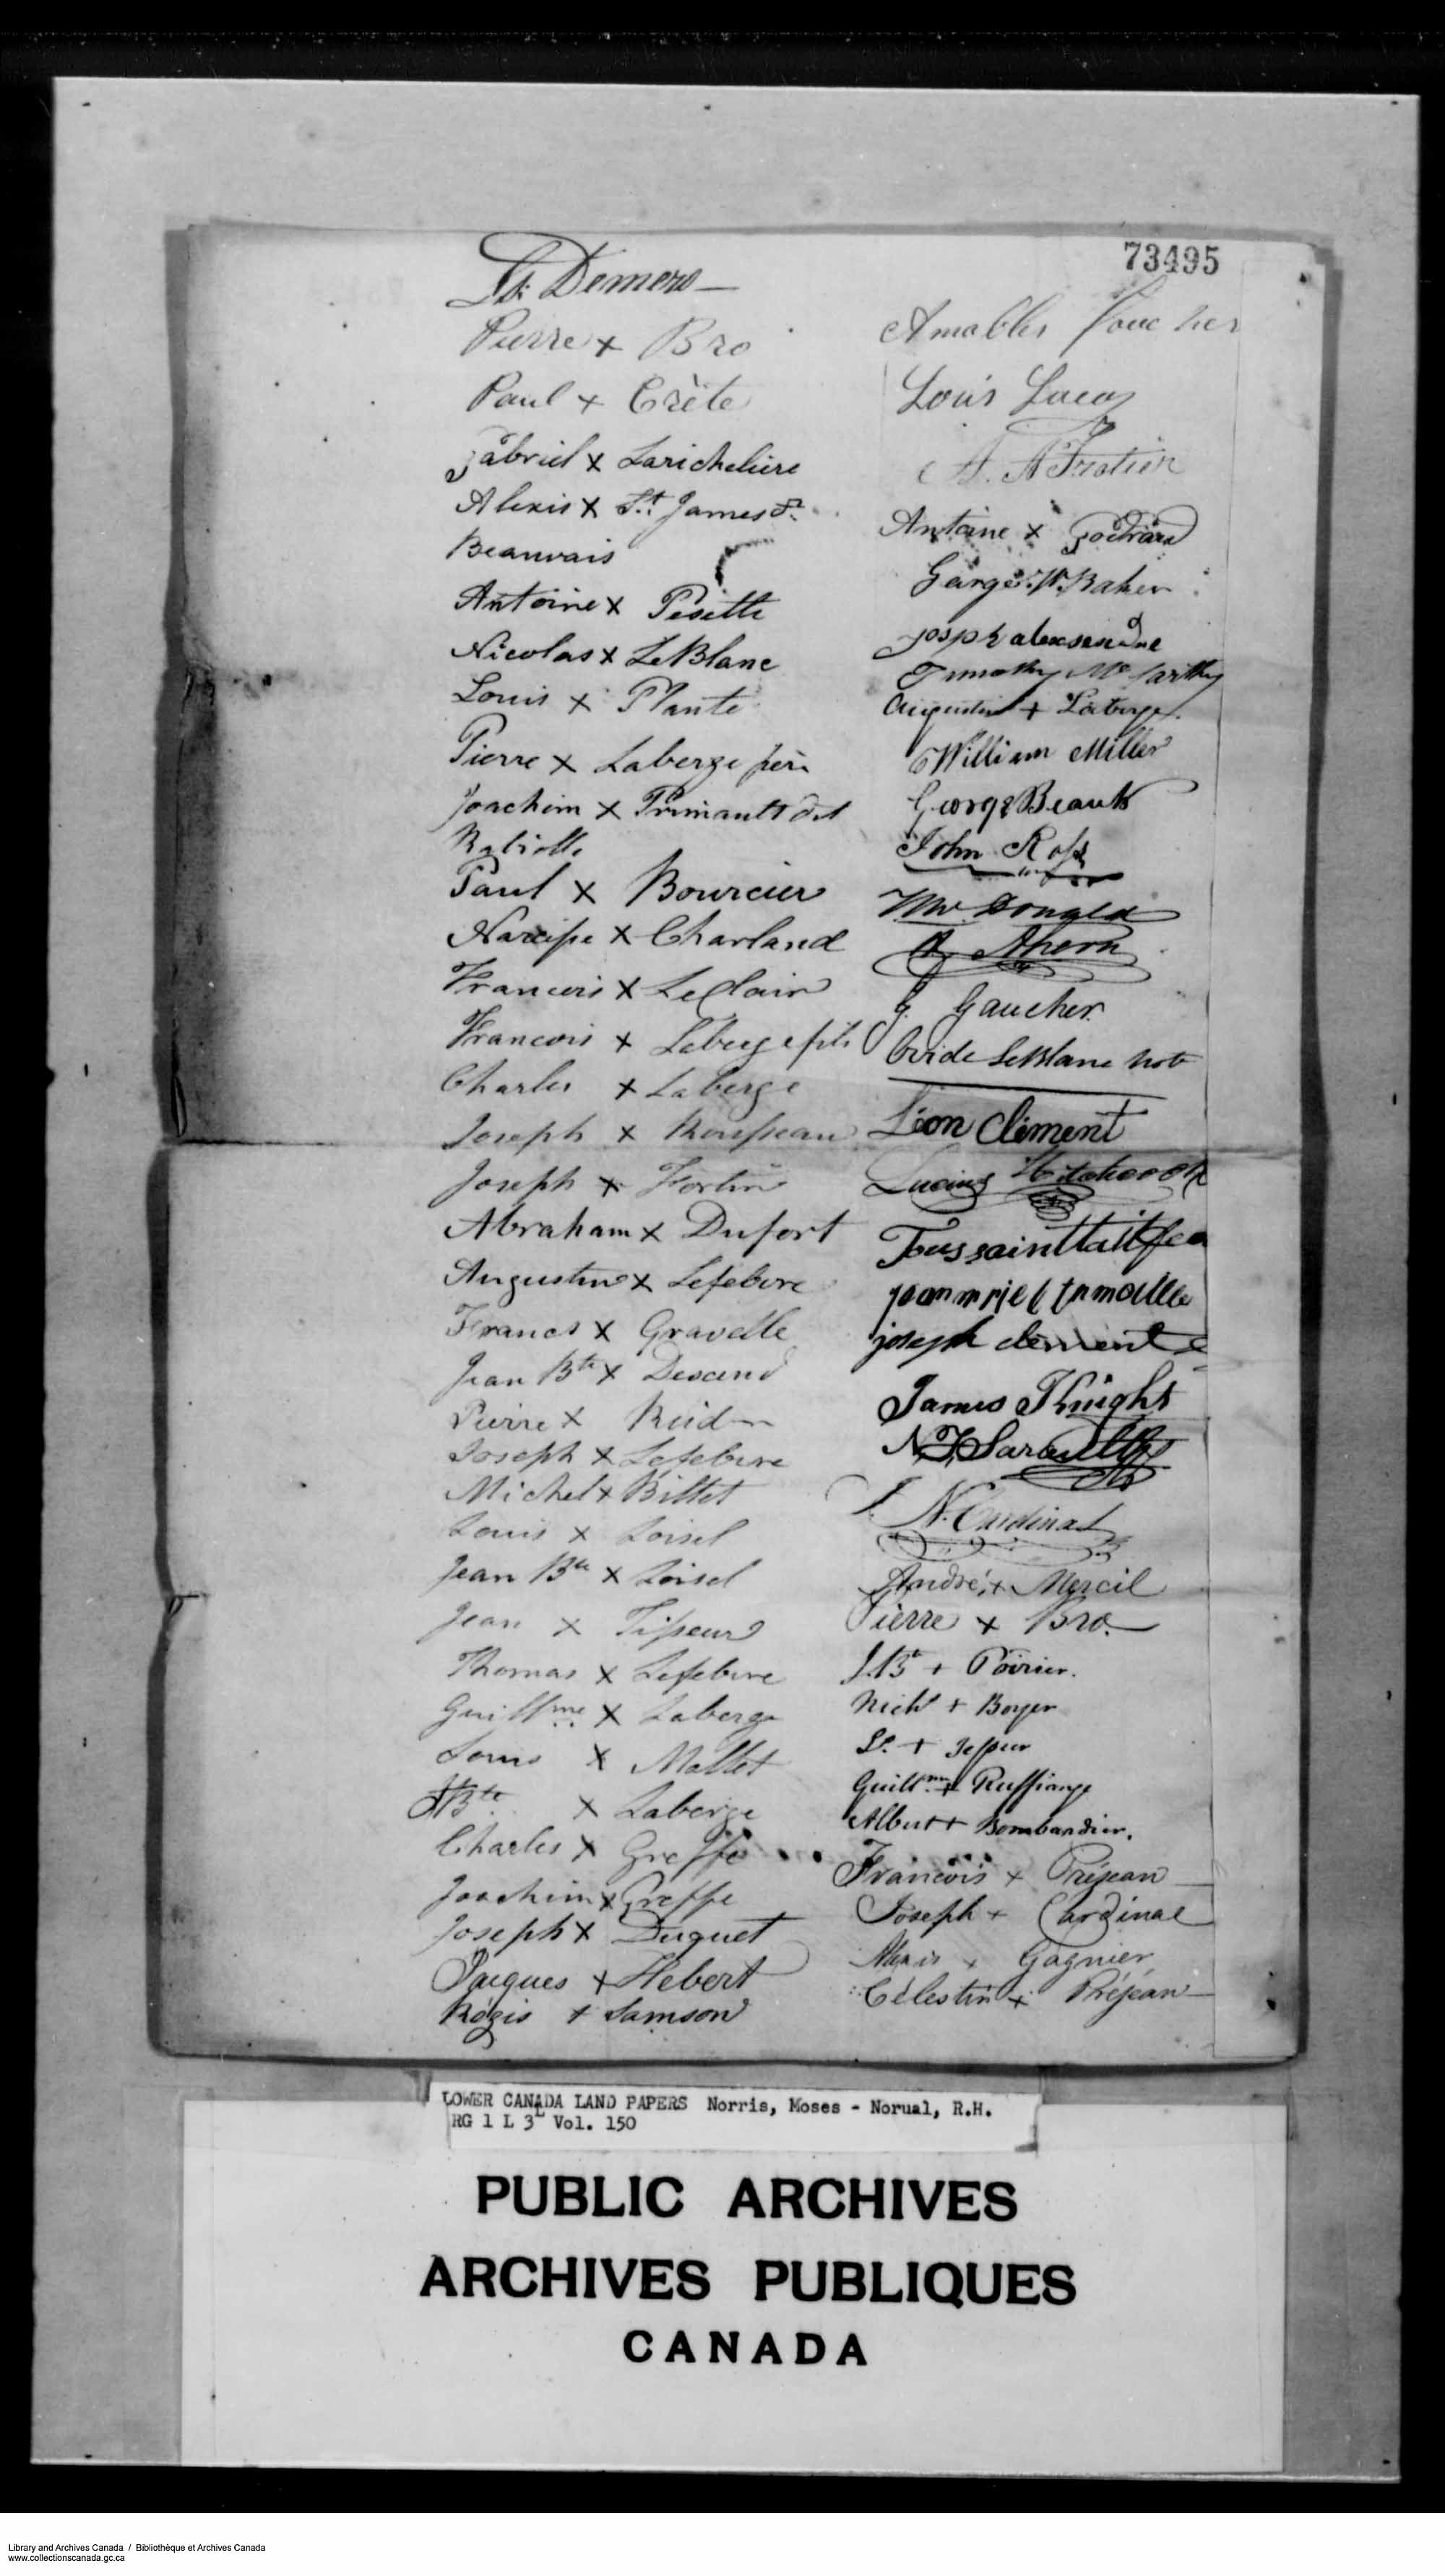 73495
Demers
Pierre x Bro
Paul x Crète
gabriel x Larichelière
Alexis x St. James dt
Beauvais
Antoine x Pésette
Nicolas x LeBlanc
Louis x Plante
Pierre x Laberge père
Joachim x Primault dit
Paul x Bourcier
Narcisse x Charland
Francois x LeClair
Francois x Laberge fils
Charles x Laberge
Joseph x Rousseau
Joseph x Fortin
Abraham x Dufort
Augustin x Lefebvre
Francs x Gravelle
Jean Bte x
Pierre x
Joseph x Lefebvre
Michel x Billet
Louis x Loisel
Jean Bte x Loisel
Jean x Tisseur
Thomas x Lefebvre
Guillme x Laberge
Louis x Mallet
JBte x Laberge
Charles x Greffe
Joachim x Greffe
Joseph x Duquet
Jacques x Hébert
Régis + Samson
Amables Foucher
Louis Lucas
Antoine x
George W. Baker
Timothy Mc Carthy
Augustin + Laberge
William Miller
George Beault
John Ross
Wm. Donald
A. Ahern
G. Gaucher
Ovide LeBlanc not
Léon Clément
Lucius Hitchcock
Toussaint
joseph clement
James Knight
J. N. Cardinal
André + Mercil
Pierre x Bro.
J. Bt + Poirier.
Nichs + Boyer
Ls. + Jesseur
Guillme + Ruffiange
Albert + Bombardier.
Francois x Préjean
Joseph + Cardinal
Alexis x Gagnier
Célestin x Préjean
LOWER CANADA LAND PAPERS Norris, Moses - Norual, R.H.
RG 1 L 3L Vol. 150
PUBLIC ARCHIVES
ARCHIVES PUBLIQUES
CANADA
Library and Archives Canada / Bibliothèque et Archives Canada
www.collectionscanada.gc.ca